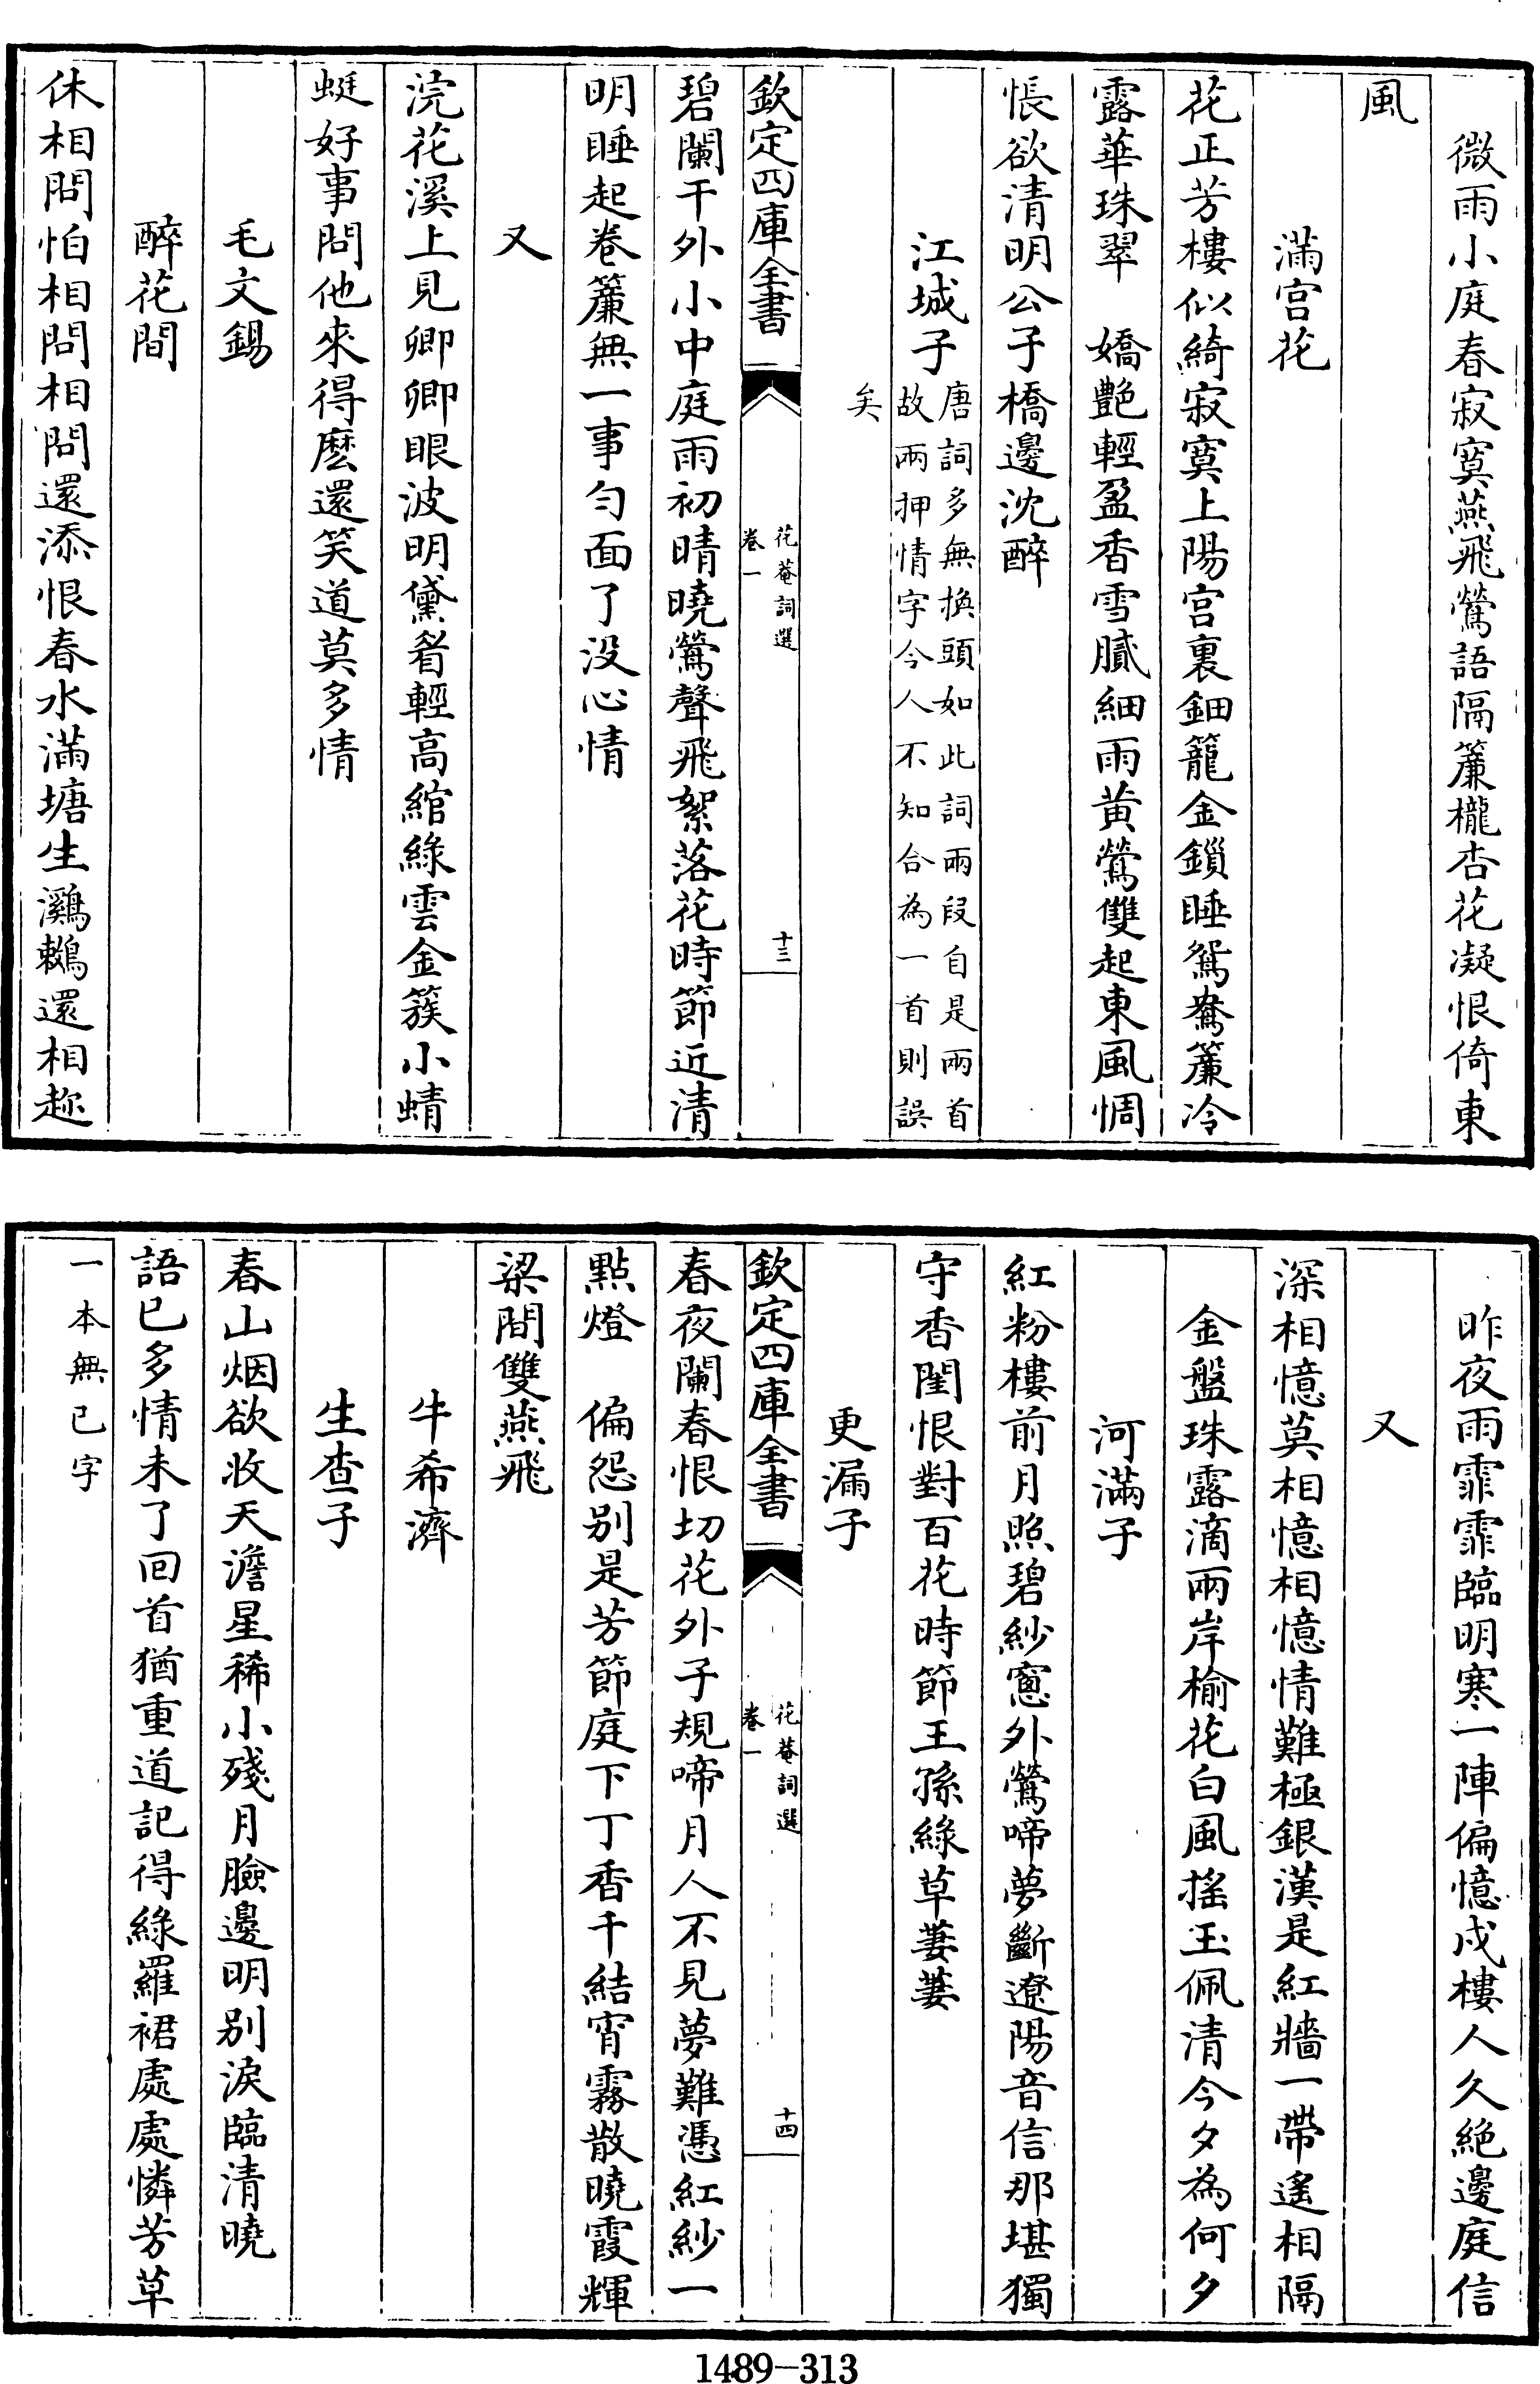 微雨小庭春寂寞燕飛鶯語隔簾櫳杏花凝恨倚東
風
滿宫花
花正芳樓似綺寂寞上陽宫裏鈿籠金鎖睡鴛鴦簾冷
露華珠翠　嬌艶輕盈香雪膩細雨黄鶯雙起東風惆
悵欲清明公子橋邊沈醉
江城子唐詞多無換頭如此詞兩段自是兩首
故兩押情字今人不知合為一首則誤
矣
欽定四庫全書
花菴詞選
卷一
十三
碧闌干外小中庭雨初晴曉鶯聲飛絮落花時節近清
明睡起卷簾無一事匀面了没心情
又
浣花溪上見卿卿眼波明黛眉輕高綰緑雲金簇小蜻
蜓好事問他來得麽還笑道莫多情
毛文錫
醉花間
休相問怕相問相問還添恨春水滿塘生鸂鶒還相趂
昨夜雨霏霏臨明寒一陣偏憶戍樓人久絶邊庭信
又
深相憶莫相憶相憶情難極銀漢是紅牆一帶遙相隔
金盤珠露滴兩岸榆花白風搖玉佩清今夕為何夕
河滿子
紅粉樓前月照碧紗窻外鶯啼夢斷遼陽音信那堪獨
守香閨恨對百花時節王孫緑草萋萋
更漏子
欽定四庫全書
花菴詞選
卷一
十四
春夜闌春恨切花外子規啼月人不見夢難憑紅紗一
點燈　偏怨别是芳節庭下丁香千結宵霧散曉霞輝
梁間雙燕飛
牛希濟
生查子
春山烟欲收天澹星稀小殘月臉邊明别淚臨清曉
語已多情未了回首猶重道記得緑羅裙處處憐芳草
一本無已字
1489-313